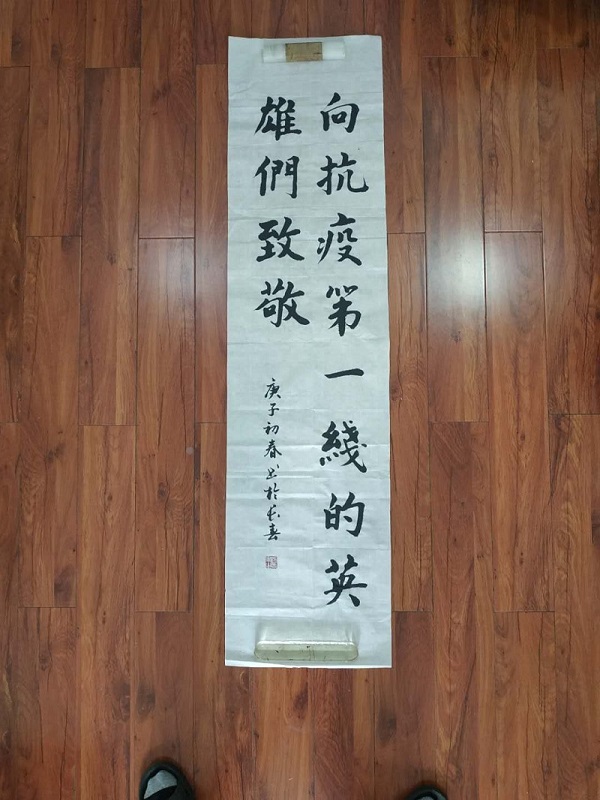 向抗疫第一綫的英
雄們致敬
庚子初春书於长春